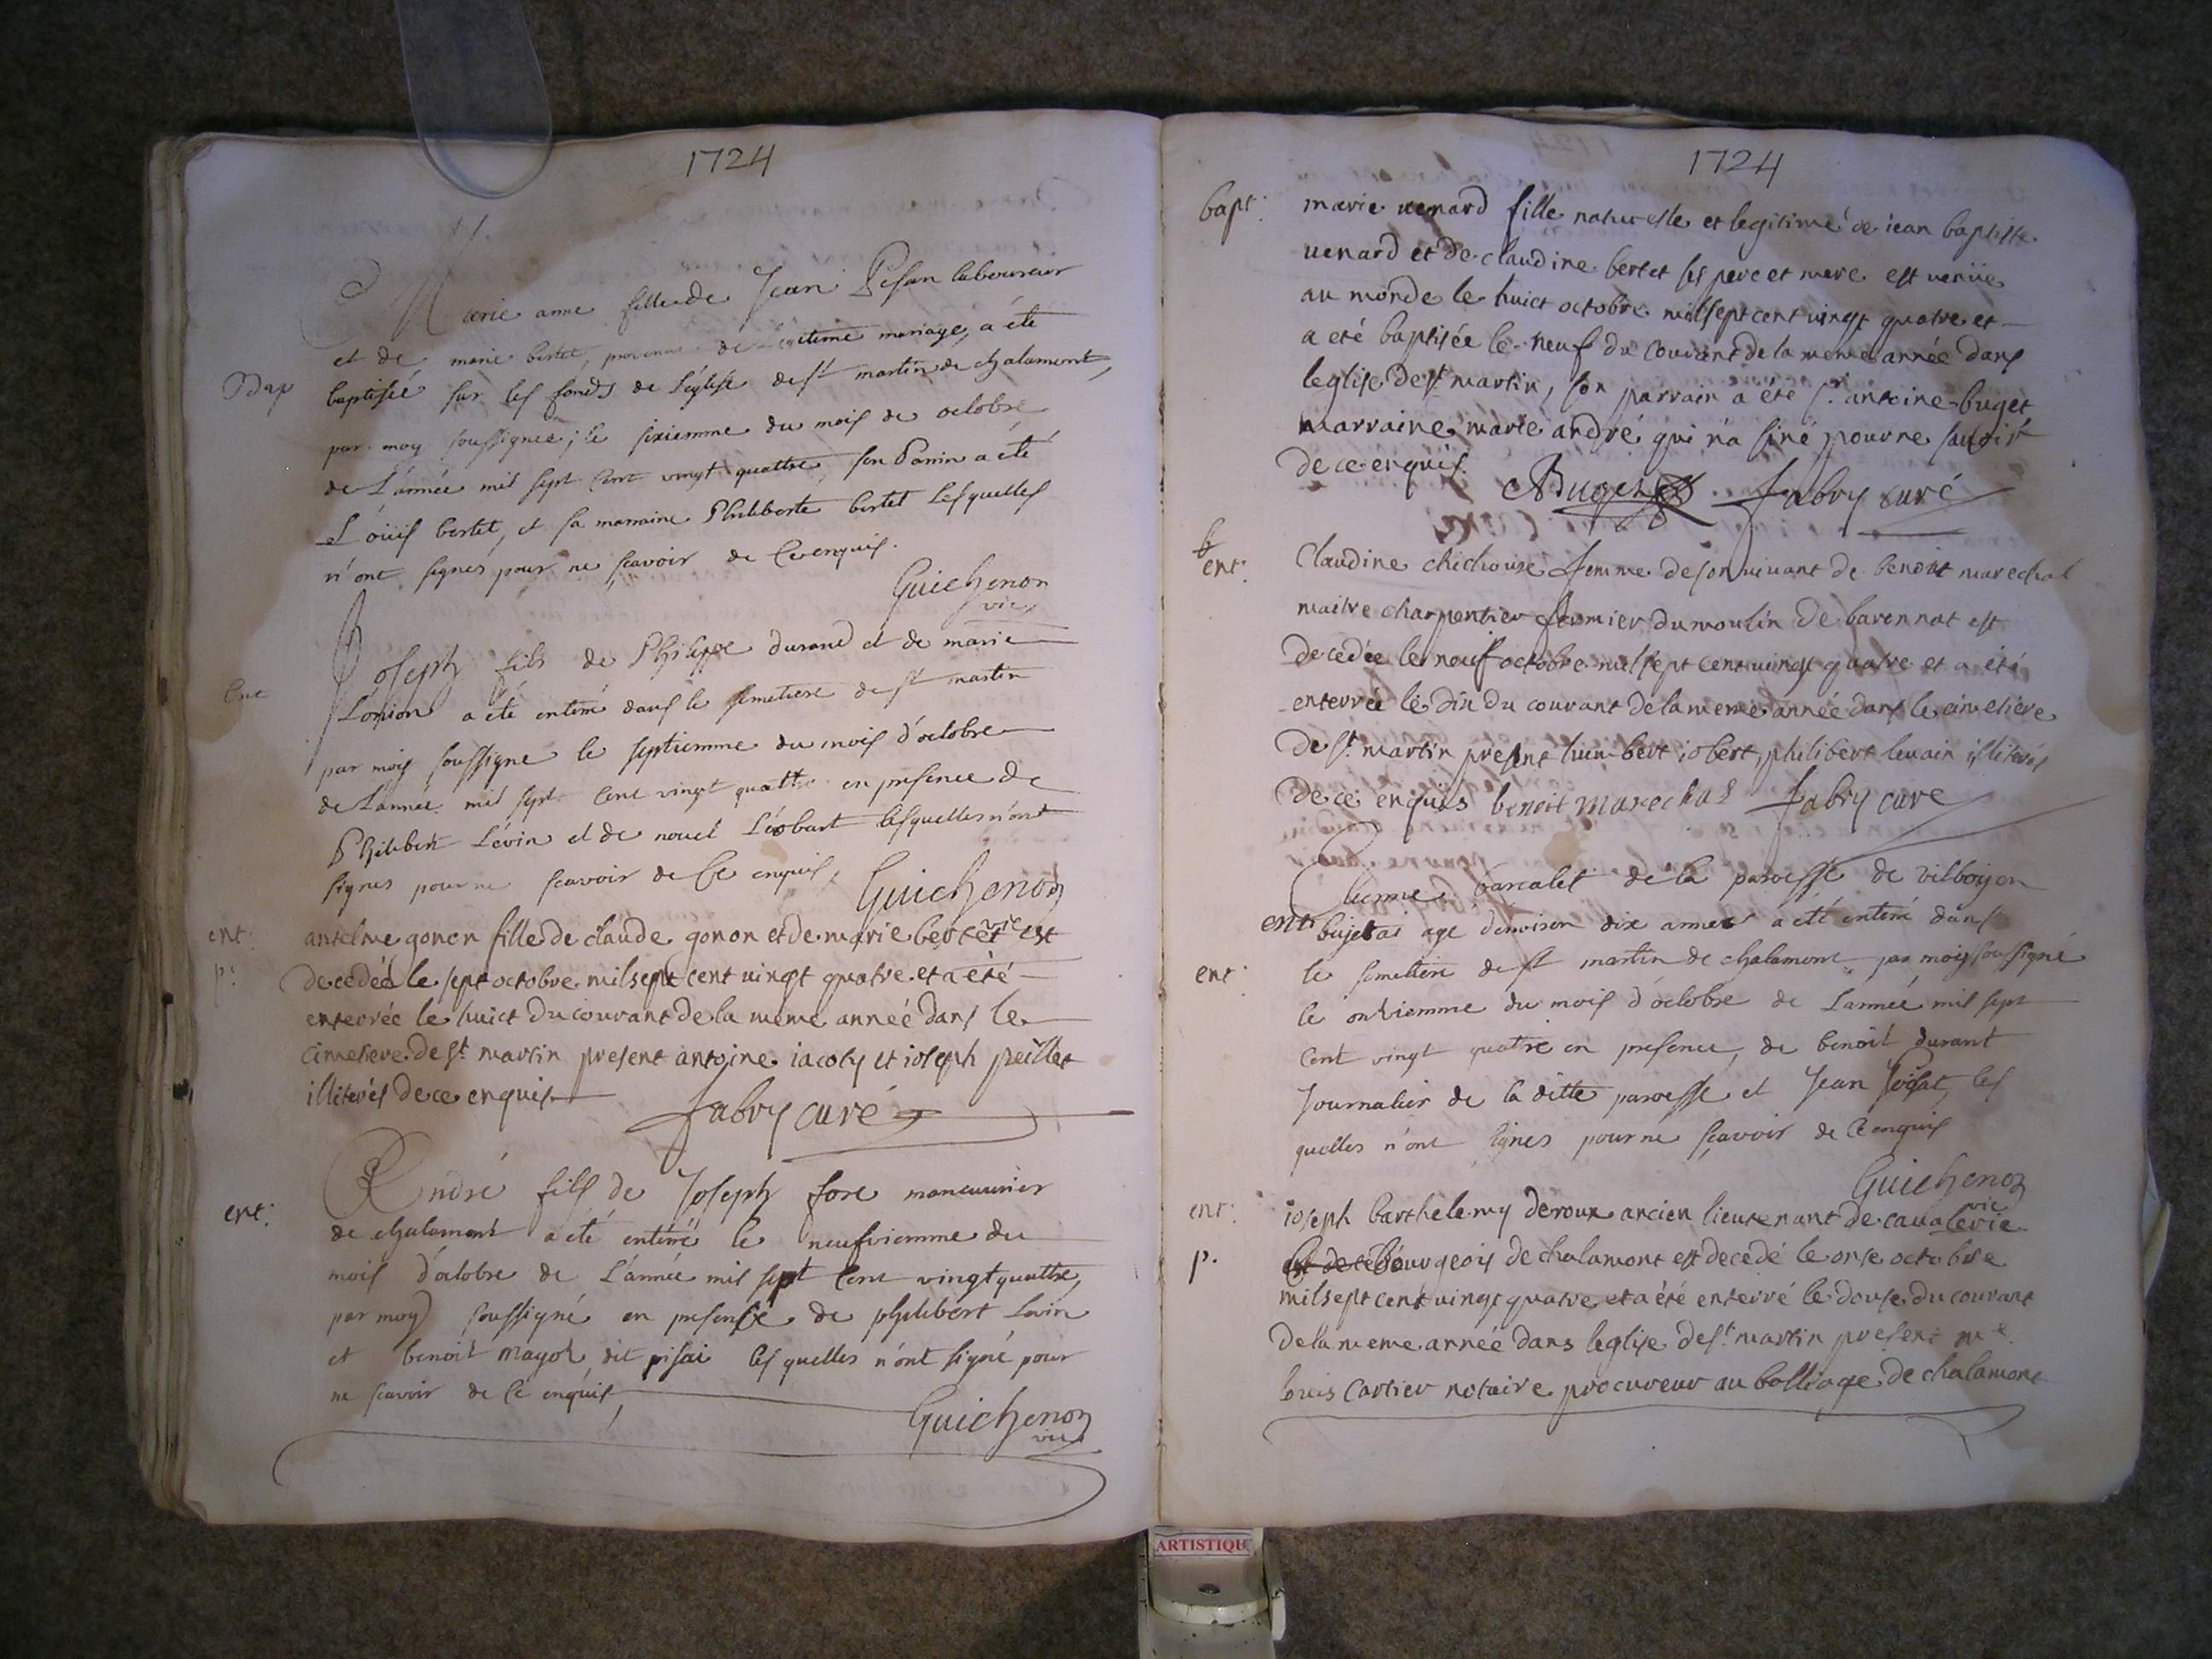 1724
Marie anne fille de Jean Pesan laboureur
et de marie bertet, provenue de Légitime mariage, a été
Bap
baptisée sur les fonds de L'église de st martin de chalamont,
par moy soussignée; le sixiemme du mois de octobre
de L'année mil sept Cent vingt quattre, son Parrin a été
Loüis bertet, et sa marraine Philiberte bertet Lesquelles
n'ont signés pour ne sçavoir de Ce enquis.
Guichenon
vic
Joseph fils de Philippe durand et de marie
Ent
Lonion a été enterré dans le semetiere de st martin
par moy soussigne le septiemme du mois d'octobre
de L'année mil sept Cent vingt quattre en presence de
Philibert Lévin et de nouel Léobart lesquelles n'ont
signes pour ne scavoir de Ce enquis,
Guichenon
vic
ent:
p:
antelme gonon fille de claude gonon et de marie bertet est
decedée le sept octobre mil sept cent vingt quatre et a été
enterrée le huict du courant de la meme année dans le
cimetiere de st martin present antoine iacoty et ioseph peillet
illiterés de ce enquis
fabry curé
André fils de Joseph fore maneuvrier
ent:
de chalamont a été enterré le neufviemme du
mois d'octobre de L'année mil sept Cent vingt quattre,
par moy soussigné en presense de philibert Lovin
et benoit mayot dit pisai lesquelles n'ont signé pour
ne scavoir de Ce enquis
Guichenon
vic
1724
bapt:
marie uenard fille naturelle et legitime de iean baptiste
uenard et de claudine bertet ses pere et mere est venüe
au monde le huict octobre mil sept cent vingt quatre et
a eté baptisée le neuf du couvant de la meme année dans
leglise de st martin, son parrain a été sr antoine buget
marraine marie andré qui n'a siné pour ne sauoir
de ce enquis.
ABuget fabry curé
b
ent:
Claudine chichoux femme de son uiuant de benoit marechal
maitre charpentier fermier du moulin de barennat est
decedée le neuf octobre mil sept cent uingt quatre et a été
enterrée le dix du courant de la meme année dans le cimetiere
de st martin present humbert iobert, philibert leuain illiterés
de ce enquis benoit marechal fabry cure
Etienne barcalet de la paroesse de vilboyon
ent:
bujetai age d'environ dix annes a été enterré dans
ent:
le semettiere de st martin de chalamont par moy soussigné
le onziemme du mois d'octobre de L'année mil sept
Cent vingt quatre en presence, de benoit durant
Journalier de la ditte paroesse et Jean Joisat, les
quelles n'ont signes pour ne sçavoir de Ce enquis
Guichenon
vic
ent:
ioseph barthelemy deroux ancien lieutenant de caualerie
p.
est decé bourgeois de chalamont est decedé le onse octobre
mil sept cent uingt quatre et a été enterré le douse du courant
de la meme année dans leglise de st martin present me
louis Cartier notaire procureur au balliage de chalamont
ARTISTIQU